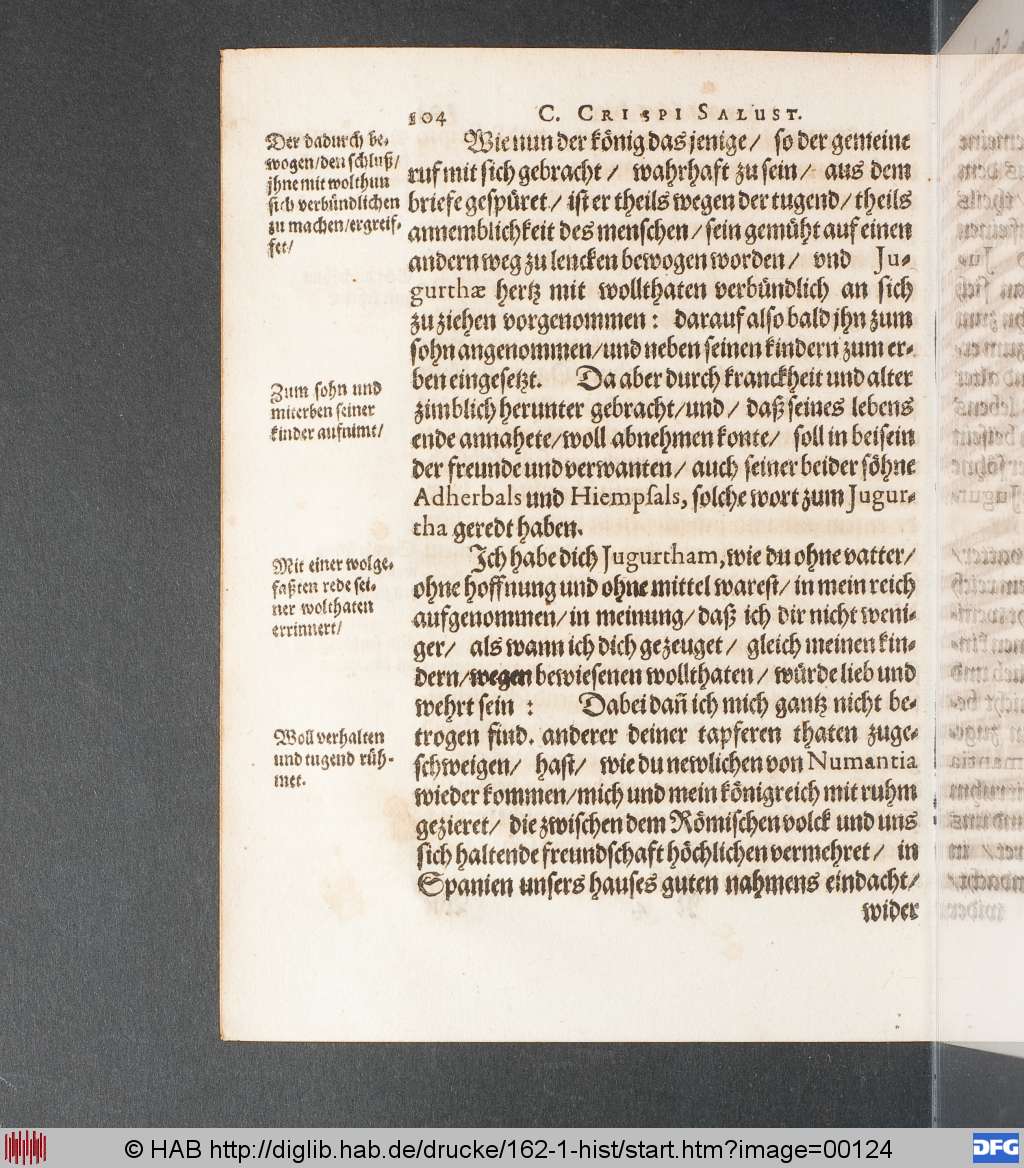 104 C. CRISPI SALUST.
Der dadurch be-
wogen/den schluß/
jhne mit wolthun
sich verbündlichen
zu machen/ergreif-
fet/
Wie nun der könig das jenige/ so der gemeine
ruf mit sich gebracht / wahrhaft zu sein/ aus dem
briefe gespüret/ ist er theils wegen der tugend/ theils
annemblichkeit des menschen/ sein gemüht auf einen
andern weg zu lencken bewogen worden/ vnd Ju-
gurthæ hertz mit wollthaten verbündlich an sich
zu ziehen vorgenommen: darauf also bald jhn zum
sohn angenommen/und neben seinen kindern zum er-
ben eingesetzt. Da aber durch kranckheit und alter
Zum sohn und
miterben seiner
kinder aufnimt/
zimblich herunter gebracht/und/ daß seines lebens
ende annahete/woll abnehmen konte/ soll in beisein
der freunde und verwanten/ auch seiner beider söhne
Adherbals und Hiempſals, solche wort zum Jugur-
tha geredt haben.
Mit einer wolge-
faßten rede sei-
ner wolthaten
errinnert/
Ich habe dich Jugurtham, wie du ohne vatter/
ohne hoffnung und ohne mittel warest/ in mein reich
aufgenommen/in meinung/ daß ich dir nicht weni-
ger/ als wann ich dich gezeuget/ gleich meinen kin-
dern/wegen bewiesenen wollthaten/ würde lieb und
wehrt sein : Dabei dañ ich mich gantz nicht be-
Woll verhalten
und tugend rüh-
met.
trogen find. anderer deiner tapferen thaten zuge-
schweigen/ hast/ wie du newlichen von Numantia
wieder kommen/mich und mein königreich mit ruhm
gezieret/ die zwischen dem Römischen volck und uns
sich haltende freundschaft höchlichen vermehret/ in
Spanien unsers hauses guten nahmens eindacht/
wider
© HAB http://diglib.hab.de/drucke/162-1-hist/start.htm?image=00124
DFG